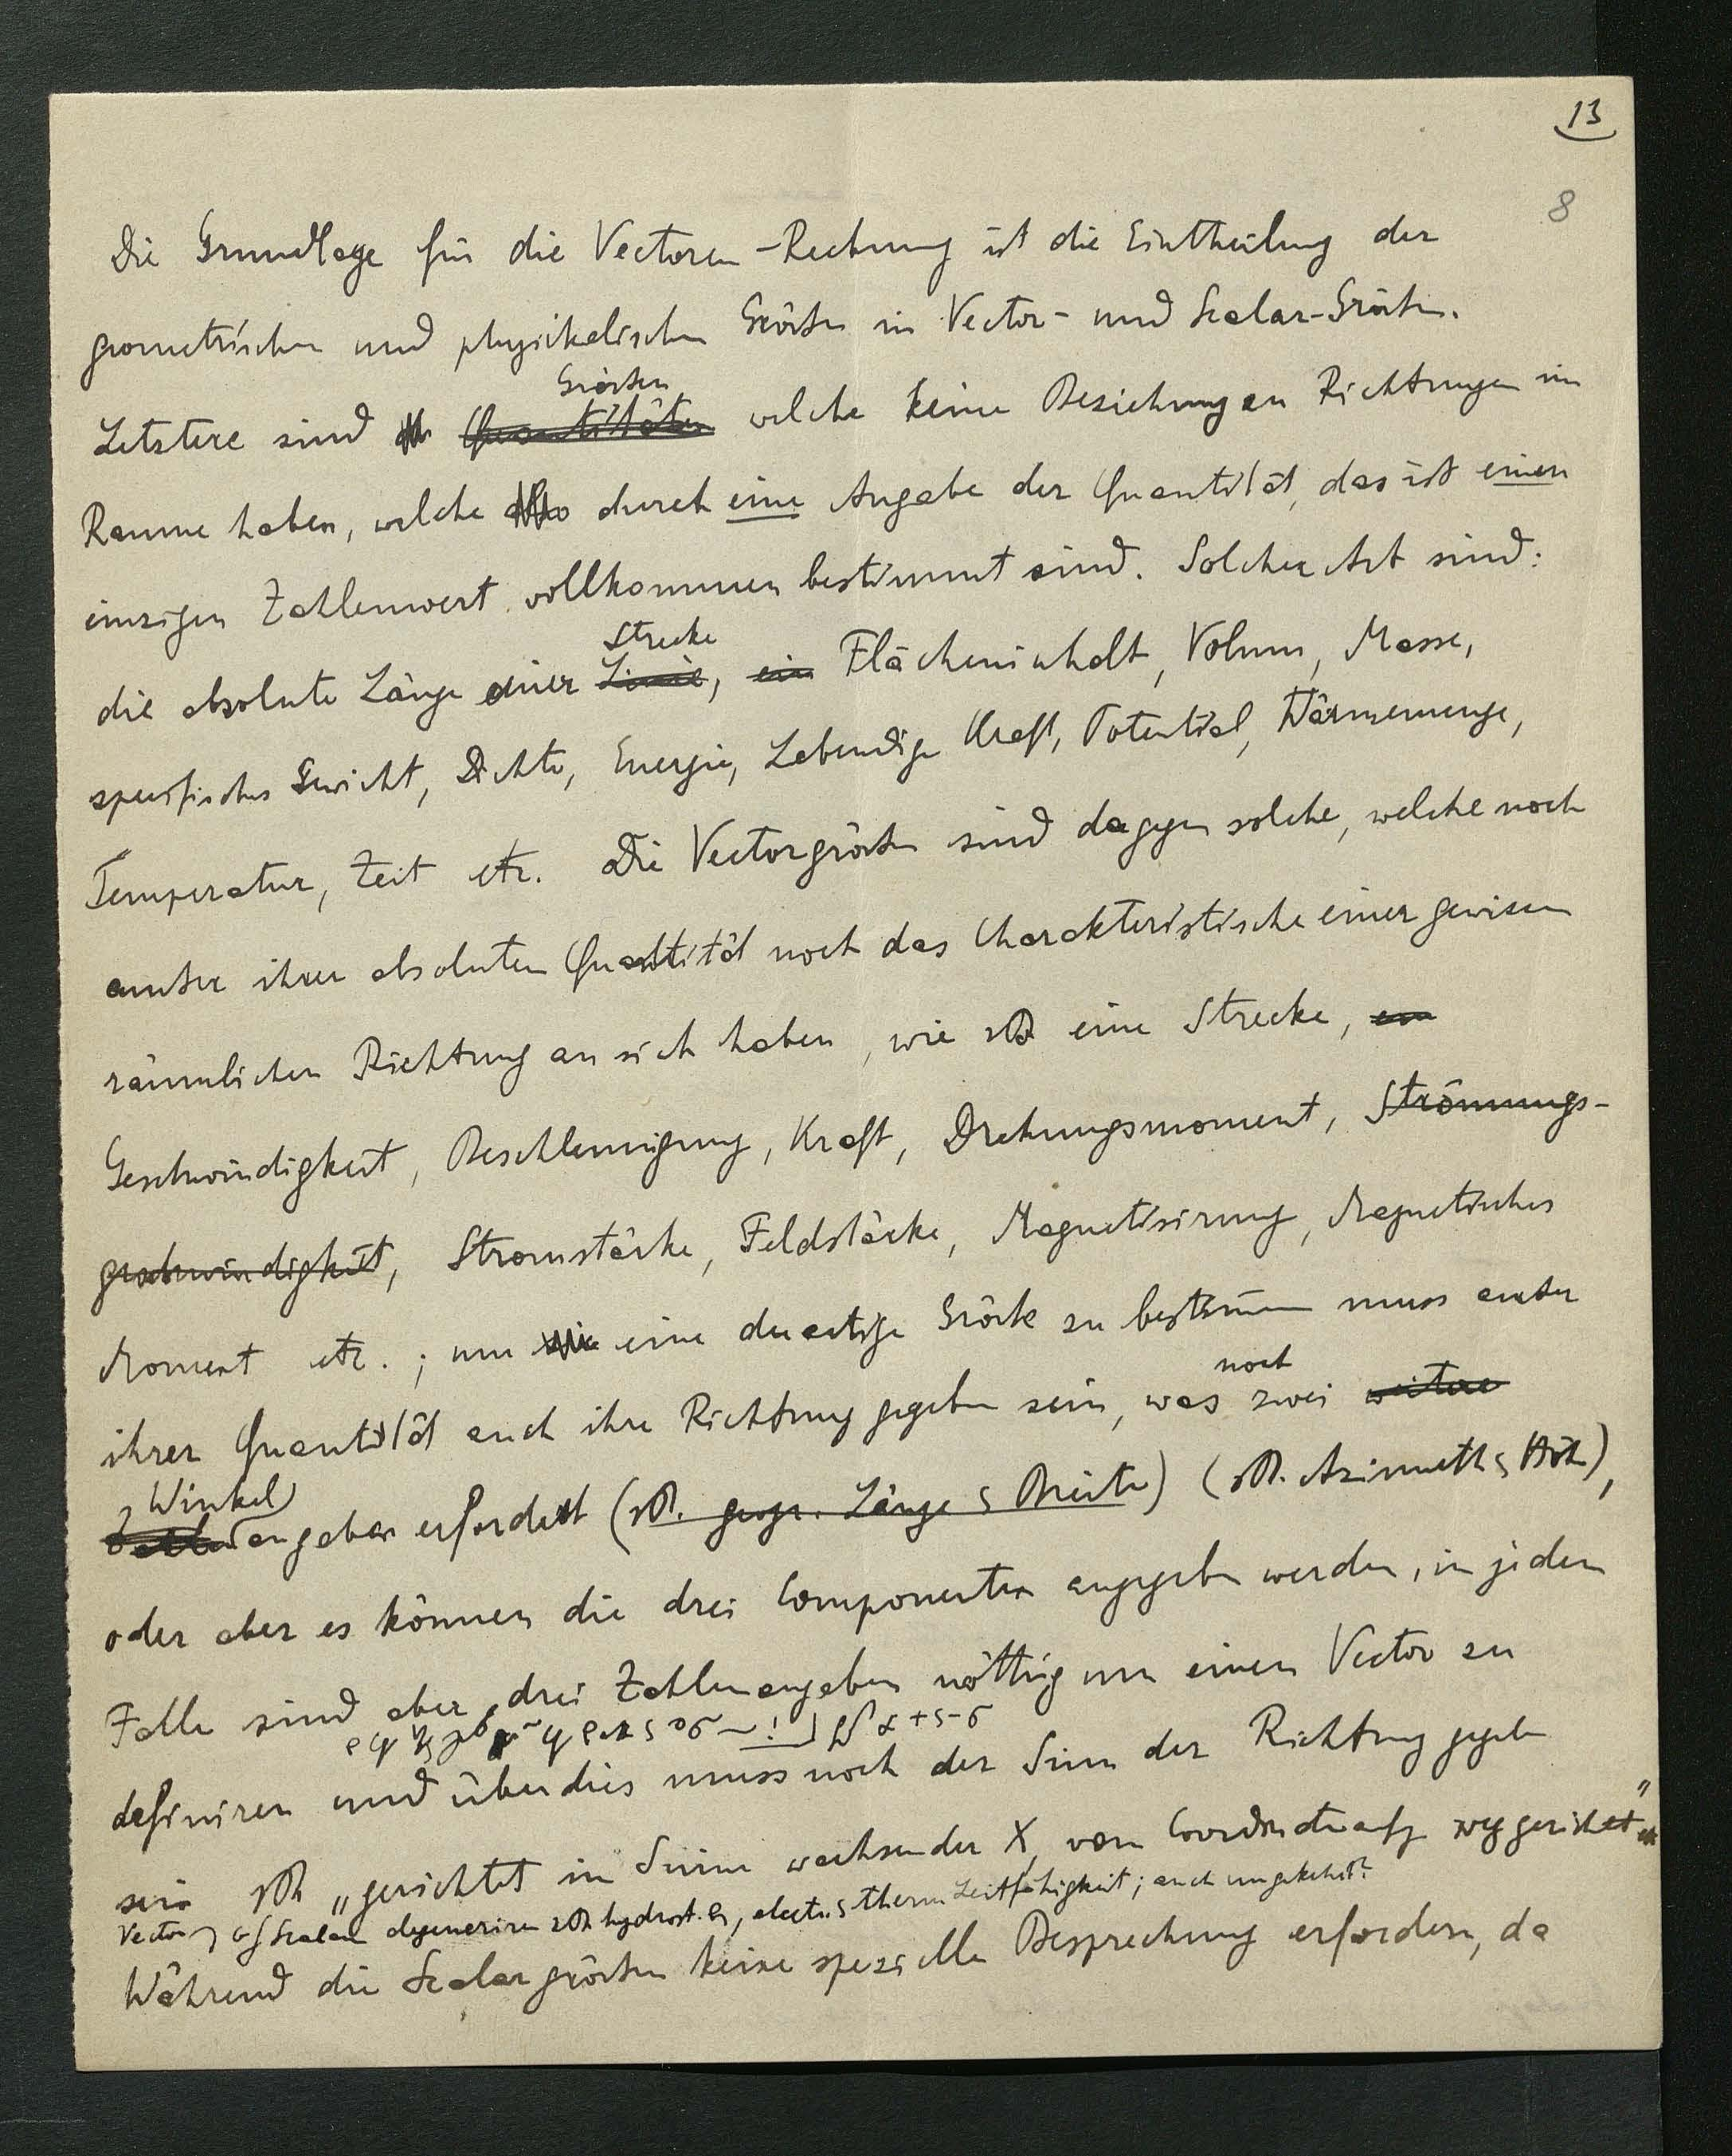 13
8
Die Grundlage für die Vectoren-Rechnung ist die Eintheilung der
geometrischen und physikalischen Grössen in Vector- und Scalar-Grössen.
Grössen
Letztere sind Quantitäten welche keine Beziehung zu Richtungen im
Raume haben, welche also durch eine Angabe der Quantität, das ist einen
einzigen Zahlenwert vollkommen bestimmt sind. Solcher Art sind:
Strecke
die absolute Länge einer Linie, ein Flächeninhalt, Volum, Masse,
specifisches Gewicht, Dichte, Energie, Lebendige Kraft, Potential, Wärmemenge,
Temperatur, Zeit etc. Die Vectorgrössen sind dagegen solche, welche noch
ausser ihrer absoluten Quantität noch das Charakteristische einer gewissen
räumlichen Richtung an sich haben, wie zB eine Strecke, ein
Geschwindigkeit, Beschleunigung, Kraft, Drehungsmoment, Strömungs-
geschwindigkeit, Stromstärke, Feldstärke, Magnetisirung, Magnetisches
Moment etc.; um eine derartige Grösse zu bestimmen muss ausser
noch
ihrer Quantität auch ihre Richtung gegeben sein, was zwei weitere
Winkel
angaben erfordert (zB. geogr. Länge & Breite) (zB. Azimuth & Höhe),
oder aber es können die drei Componenten angegeben werden, in jedem
Falle sind aber drei Zahlenangaben nöthig um einen Vector zu
definiren und überdies muss noch der Sinn der Richtung gegeben
sein zB „gerichtet im Sinne wachsender X, vom Coordinatenanfg weggerichtet"
Vector Scalar degeneriren zB hydrost. , electr. & therm Leitfähigkeit; auch umgekehrt?
Während die Scalargrössen keine spezielle Besprechung erfordern, da